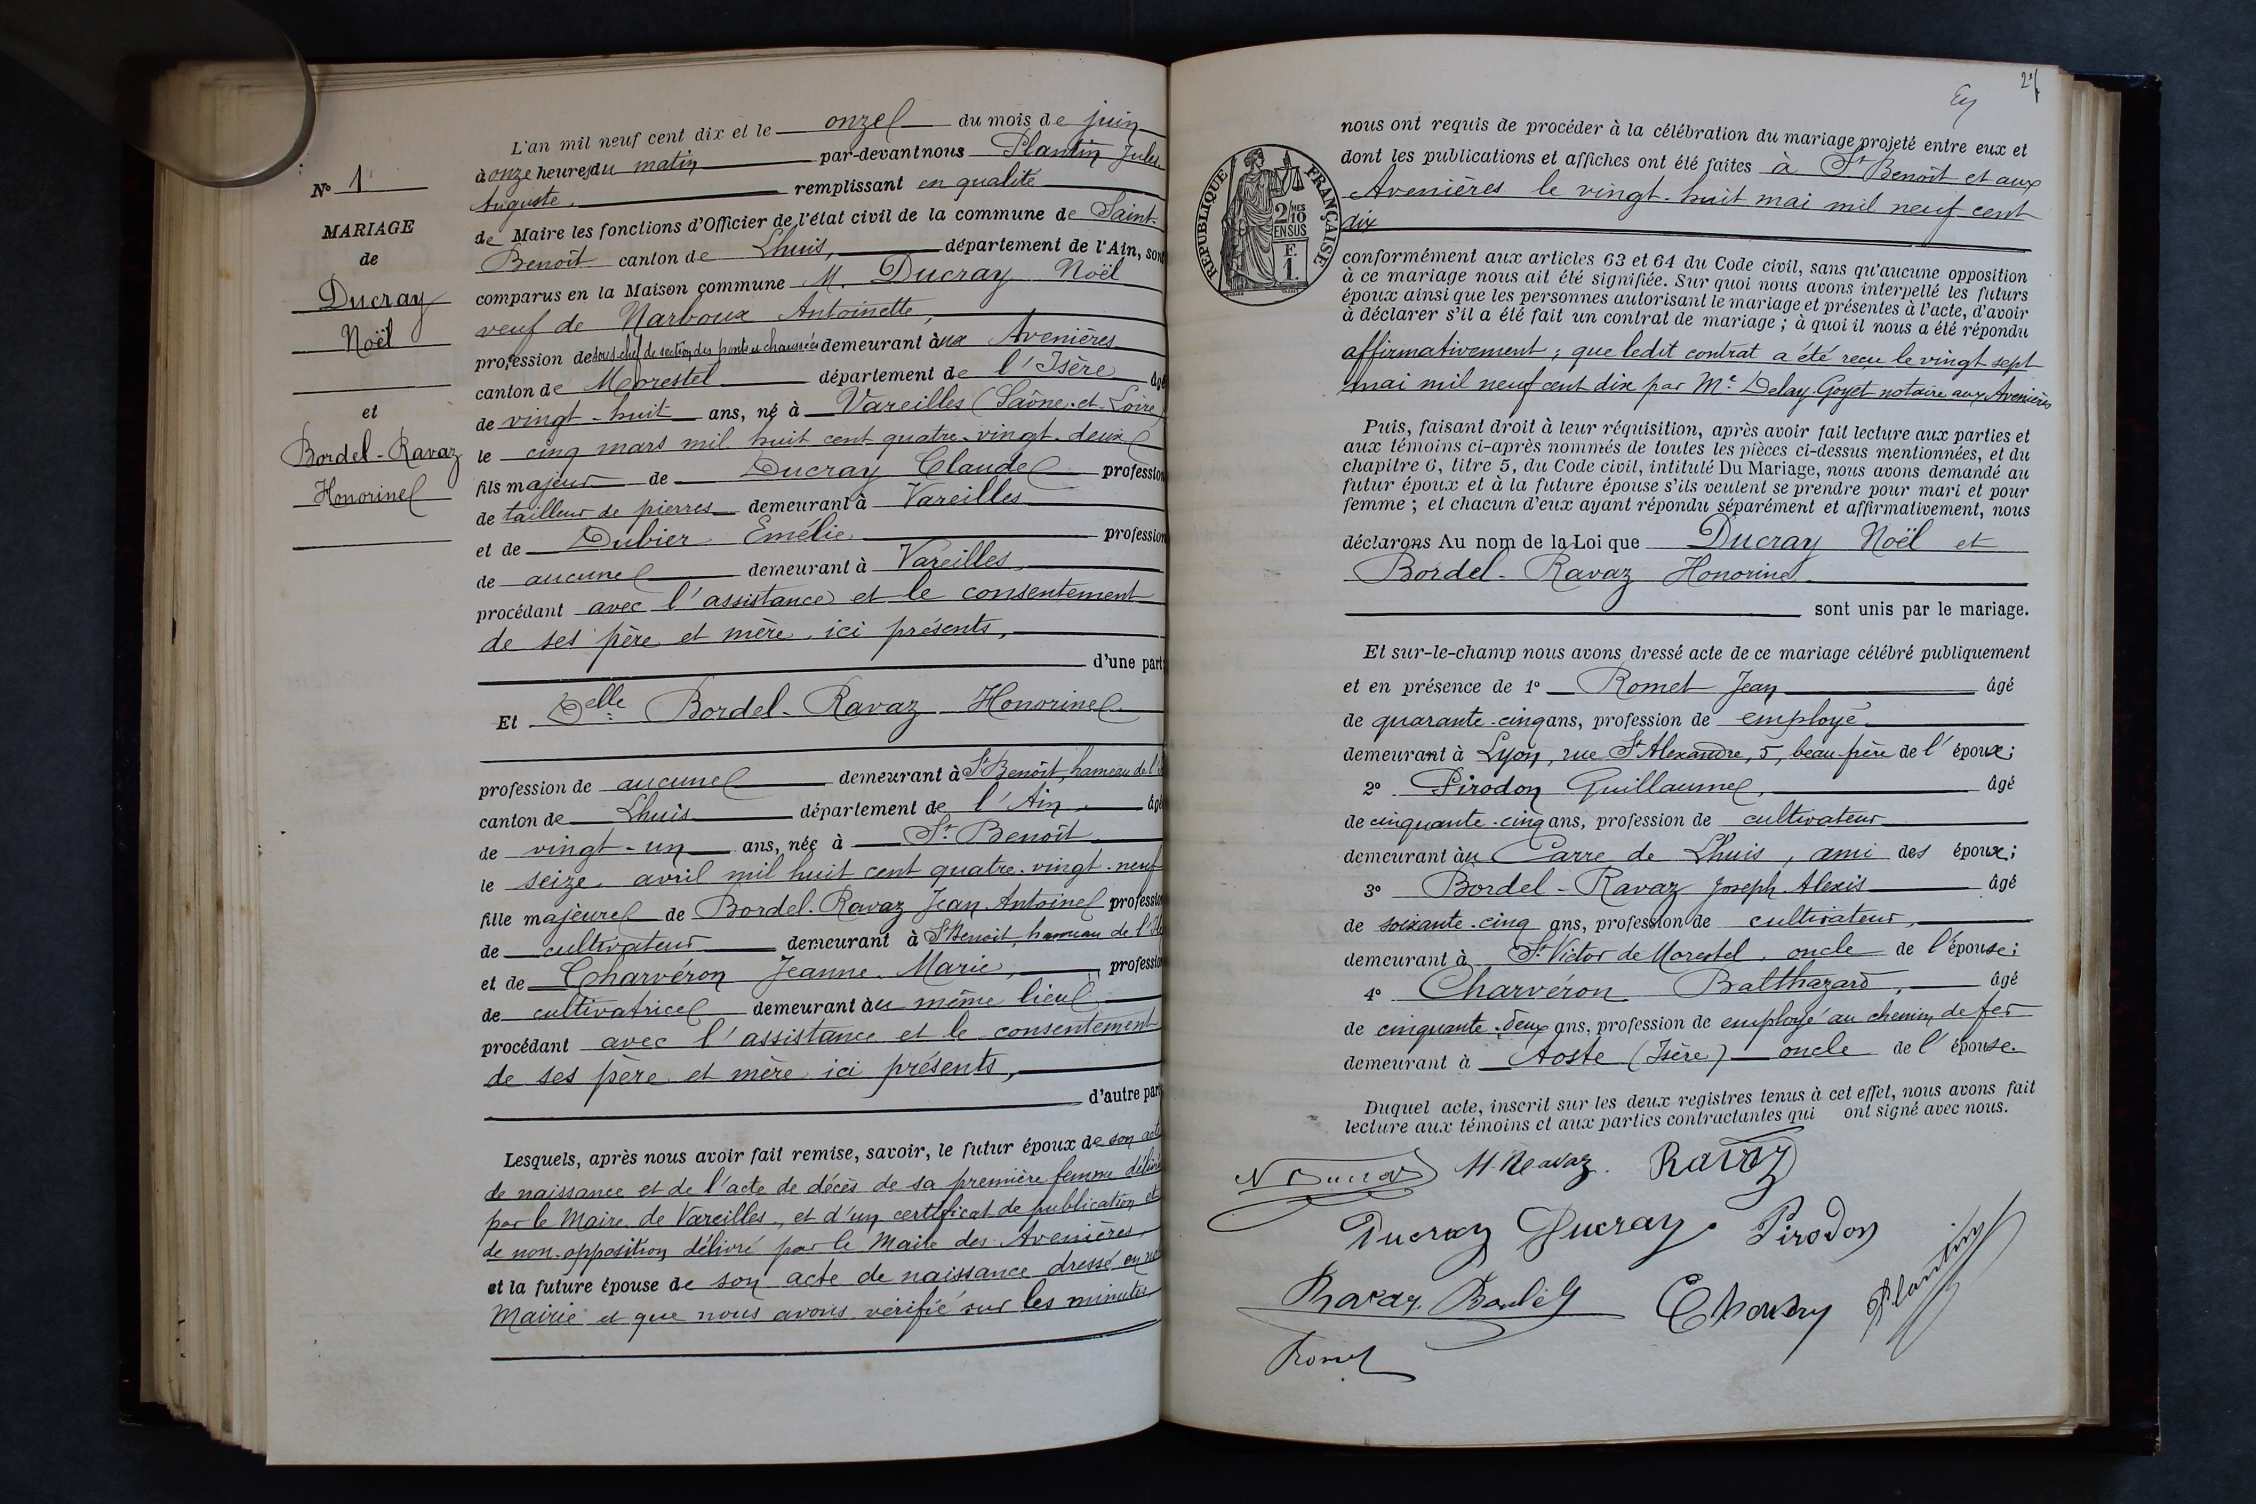 N° 1
MARIAGE
de
Ducray
Noël
et
Bordel-Ravaz
Honorine
L'an mil neuf cent dix et le onze du mois de juin
à onze heures du matin par-devant nous Plantin Jules
Auguste, remplissant en qualité
de Maire les fonctions d'Officier de l'état civil de la commune de Saint-
Benoît canton de Lhuis, département de l'Ain, sont
comparus en la Maison commune M. Ducray Noël
veuf de Narboux Antoinette,
profession de sous-chef de section des ponts et chaussées demeurant aux Avenières
canton de Morestel département de l'Isère âgé
de vingt-huit ans, né à Vareilles (Saône-et-Loire)
le cinq mars mil huit cent quatre-vingt-deux
fils majeur de Ducray Claude profession
de tailleur de pierres demeurant à Vareilles
et de Dubier Emélie profession
de aucune demeurant à Vareilles
procédant avec l'assistance et le consentement
de ses père et mère ici présents,
d'une part;
Et Delle Bordel-Ravaz Honorine
profession de aucune demeurant à St Benoît, hameau de l'
canton de Lhuis département de l'Ain, âgé
de vingt-un ans, née à St Benoît
le seize avril mil huit cent quatre-vingt-neuf
fille majeure de Bordel-Ravaz Jean Antoine profession
de cultivateur demeurant à St Benoît, hameau de l'
et de Charvéron Jeanne Marie, profession
de cultivatrice demeurant au même lieu
procédant avec l'assistance et le consentement
de ses père et mère ici présents,
d'autre part
Lesquels, après nous avoir fait remise, savoir, le futur époux de son acte
de naissance et de l'acte de décès de sa première femme délivré
par le Maire de Vareilles, et d'un certificat de publication et
de non-opposition délivré par le Maire des Avenières,
et la future épouse de son acte de naissance dressé en
Mairie et que nous avons vérifié sur les minutes
nous ont requis de procéder à la célébration du mariage projeté entre eux et
dont les publications et affiches ont été faites à St Benoît et aux
Avenières le vingt-huit mai mil neuf cent
dix
RÉPUBLIQUE FRANÇAISE
2/10
EN SUS
F.
1.
conformément aux articles 63 et 64 du Code civil, sans qu'aucune opposition
à ce mariage nous ait été signifiée. Sur quoi nous avons interpellé les futurs
époux ainsi que les personnes autorisant le mariage et présentes à l'acte, d'avoir
à déclarer s'il a été fait un contrat de mariage; à quoi il nous a été répondu
affirmativement; que ledit contrat a été reçu le vingt sept
mai mil neuf cent dix par Me Delay-Goyet notaire aux Avenières
Puis, faisant droit à leur réquisition, après avoir fait lecture aux parties et
aux témoins ci-après nommés de toutes les pièces ci-dessus mentionnées, et du
chapitre 6, titre 5, du Code civil, intitulé Du Mariage, nous avons demandé au
futur époux et à la future épouse s'ils veulent se prendre pour mari et pour
femme; et chacun d'eux ayant répondu séparément et affirmativement, nous
déclarons Au nom de la Loi que Ducray Noël et
Bordel-Ravaz Honorine
sont unis par le mariage.
Et sur-le-champ nous avons dressé acte de ce mariage célébré publiquement
et en présence de 1° Romet Jean âgé
de quarante-cinq ans, profession de employé
demeurant à Lyon, rue St Alexandre, 5, beau frère de l'époux;
2° Pirodon Guillaume, âgé
de cinquante-cinq ans, profession de cultivateur
demeurant au Carre de Lhuis, ami des époux;
3° Bordel-Ravaz Joseph Alexis âgé
de soixante-cinq ans, profession de cultivateur,
demeurant à St Victor de Morestel, oncle de l'épouse;
4° Charvéron Balthazard, âgé
de cinquante-deux ans, profession de employé au chemin de fer
demeurant à Aoste (Isère) oncle de l'épouse.
Duquel acte, inscrit sur les deux registres tenus à cet effet, nous avons fait
lecture aux témoins et aux parties contractantes qui ont signé avec nous.
N Ducray H. Ravaz. Ravaz
Ducray Ducray Pirodon
Ravaz Plantin
Romet